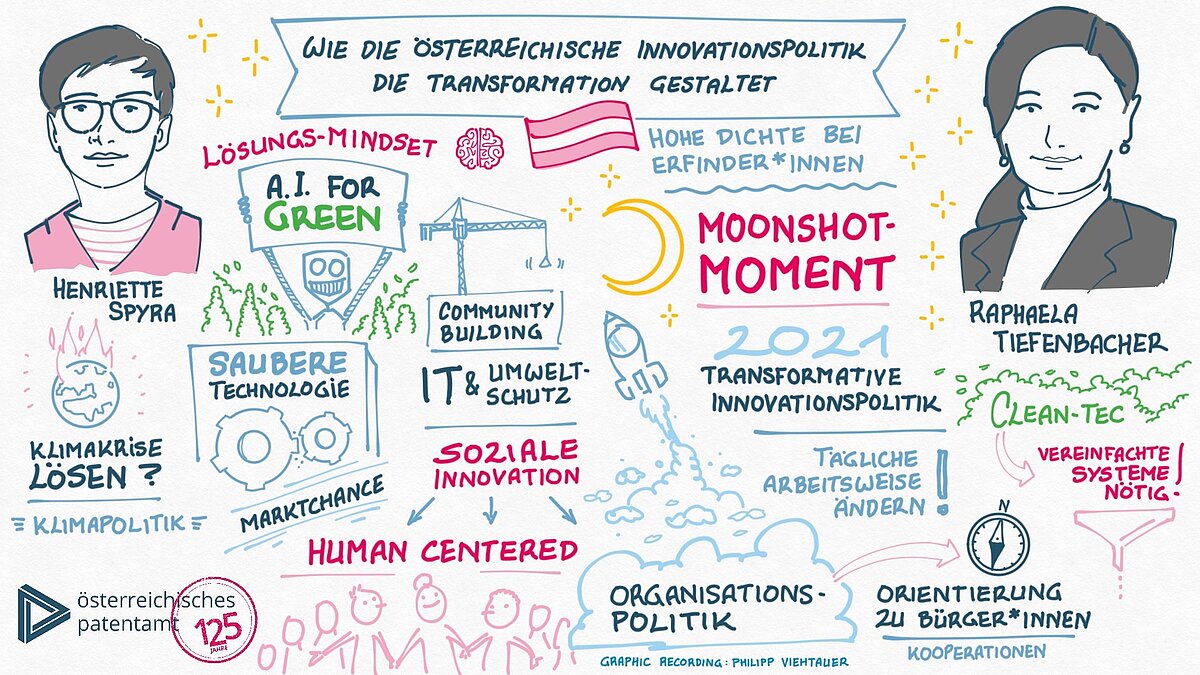 WIE DIE ÖSTERREICHISCHE INNOVATIONSPOLITIK
DIE TRANSFORMATION GESTALTET
HENRIETTE
SPYRA
LÖSUNGS-MINDSET
A.I. FOR
GREEN
COMMUNITY
BUILDING
HOHE DICHTE BEI
ERFINDER*INNEN
MOONSHOT-
MOMENT
2021
TRANSFORMATIVE
INNOVATIONSPOLITIK
RAPHAELA
TIEFENBACHER
KLIMAKRISE
LÖSEN ?
KLIMAPOLITIK
SAUBERE
TECHNOLOGIE
MARKTCHANCE
IT & UMWELT-
SCHUTZ
SOZIALE
INNOVATION
HUMAN CENTERED
TÄGLICHE
ARBEITSWEISE
ÄNDERN!
CLEAN-TEC
VEREINFACHTE
SYSTEME
NÖTIG!
ORGANISATIONS-
POLITIK
N
ORIENTIERUNG
ZU BÜRGER*INNEN
KOOPERATIONEN
österreichisches
patentamt
125
JAHRE
GRAPHIC RECORDING: PHILIPP VIEHTAUER